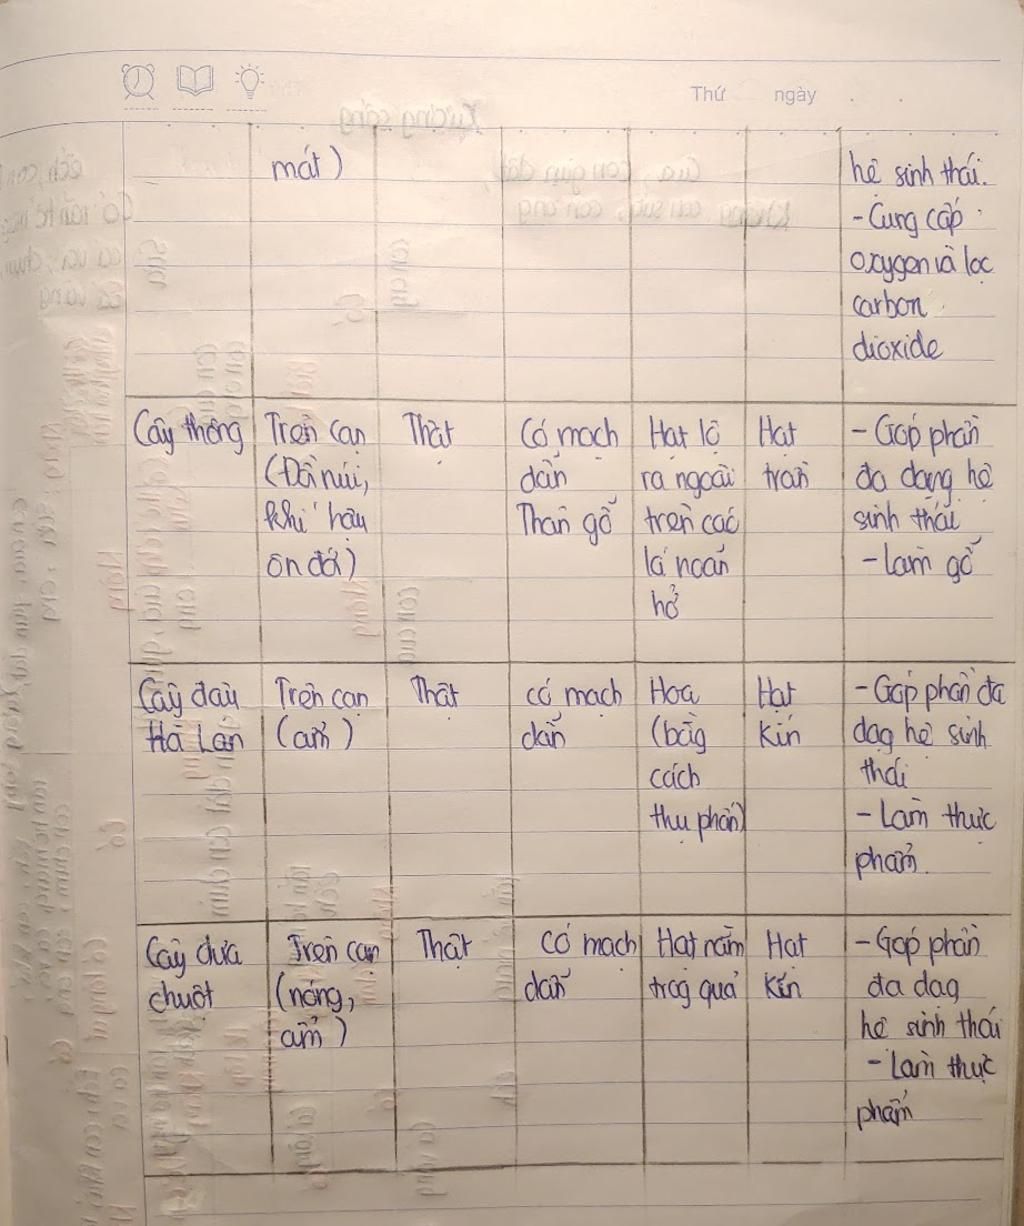 Thứ ngày
mát)
hệ sinh thái.
- Cung cấp
oxygen và lọc
carbon
dioxide
Cây thông
Trên cạn
(Đồi núi,
khí hậu
ôn đới)
Thật
Có mạch
dẫn
Thân gỗ
Hạt lộ
ra ngoài
trên các
lá noãn
hở
Hạt
trần
- Góp phần
đa dạng hệ
sinh thái
- Làm gỗ
Cây đậu
Hà Lan
Trên cạn
(ẩm)
Thật
có mạch
dẫn
Hoa
(bằg
cách
thụ phấn)
Hạt
kín
- Góp phần đa
dạg hệ sinh
thái
- Làm thực
phẩm.
Cây dưa
chuột
Trên cạn
(nóng,
ẩm)
Thật
có mạch
dẫn
Hạt nằm
trog quả
Hạt
kín
- Góp phần
đa dạg
hệ sinh thái
- Làm thực
phẩm